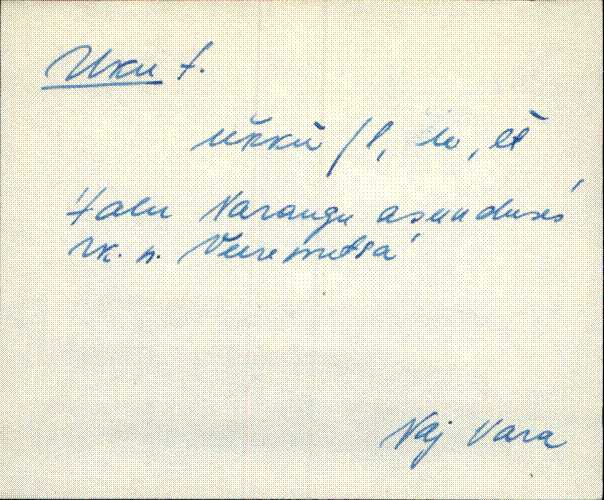 Uku t.
ukku /l, le, lt
Talu Narangu asunduses
rk. n. Veere metsa
Naj Vara